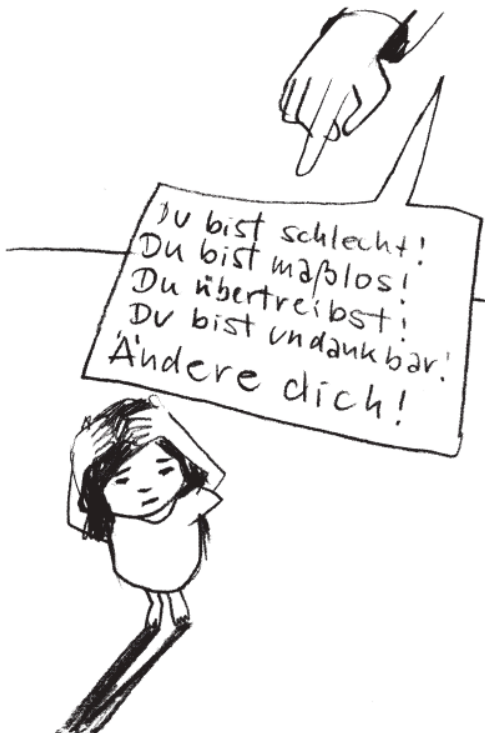 Du bist schlecht!
Du bist maßlos!
Du übertreibst!
Du bist undankbar!
Ändere dich!